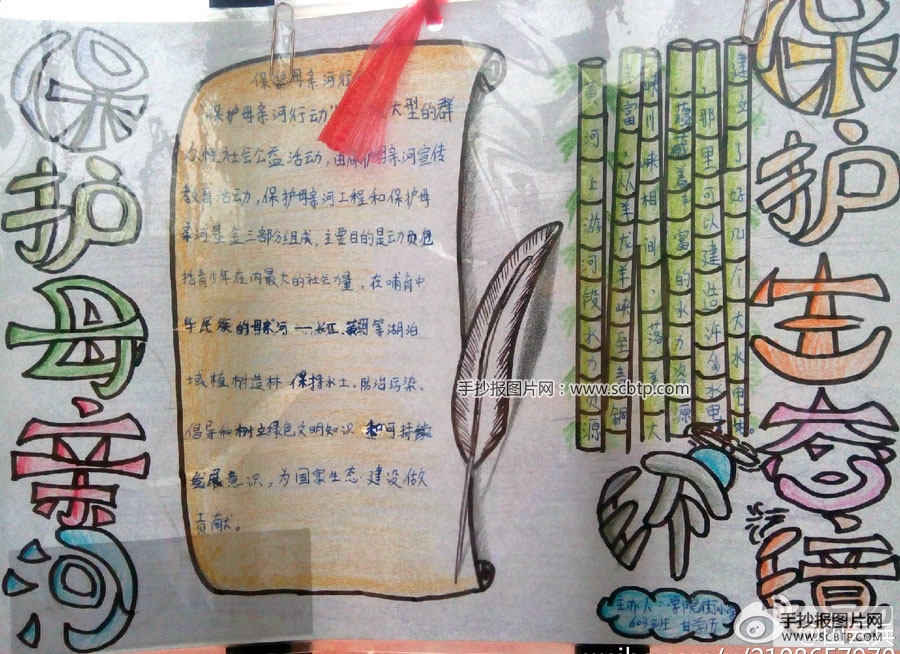 保护母亲河
保护母亲河行
"保护母亲河行动"
大型的群
众性社会公益活动,由保护母亲河宣传
教育活动,保护母亲河工程和保护母
亲河基金三部分组成,主要目的是动员包
括青少年在内最大的社会力量,在哺育中
华民族的母亲河——长江、黄河等湖泊
域植树造林 保持水土,防治污染、
倡导和树立绿色文明知识 和可持续
发展意识,为国家生态建设做
贡献。
黄河上游河段水力资源
富,从羊龙羊峡至青铜
峡川峡相间,落差大
蕴藏着丰富的水力资源
那里可以建造许多水电
建立了好几个大水电站。
保护生态环境
主办人:学院街小学
603班
手抄报图片网:www.scbtp.com
手抄报图片网
WWW.SCBTP.COM